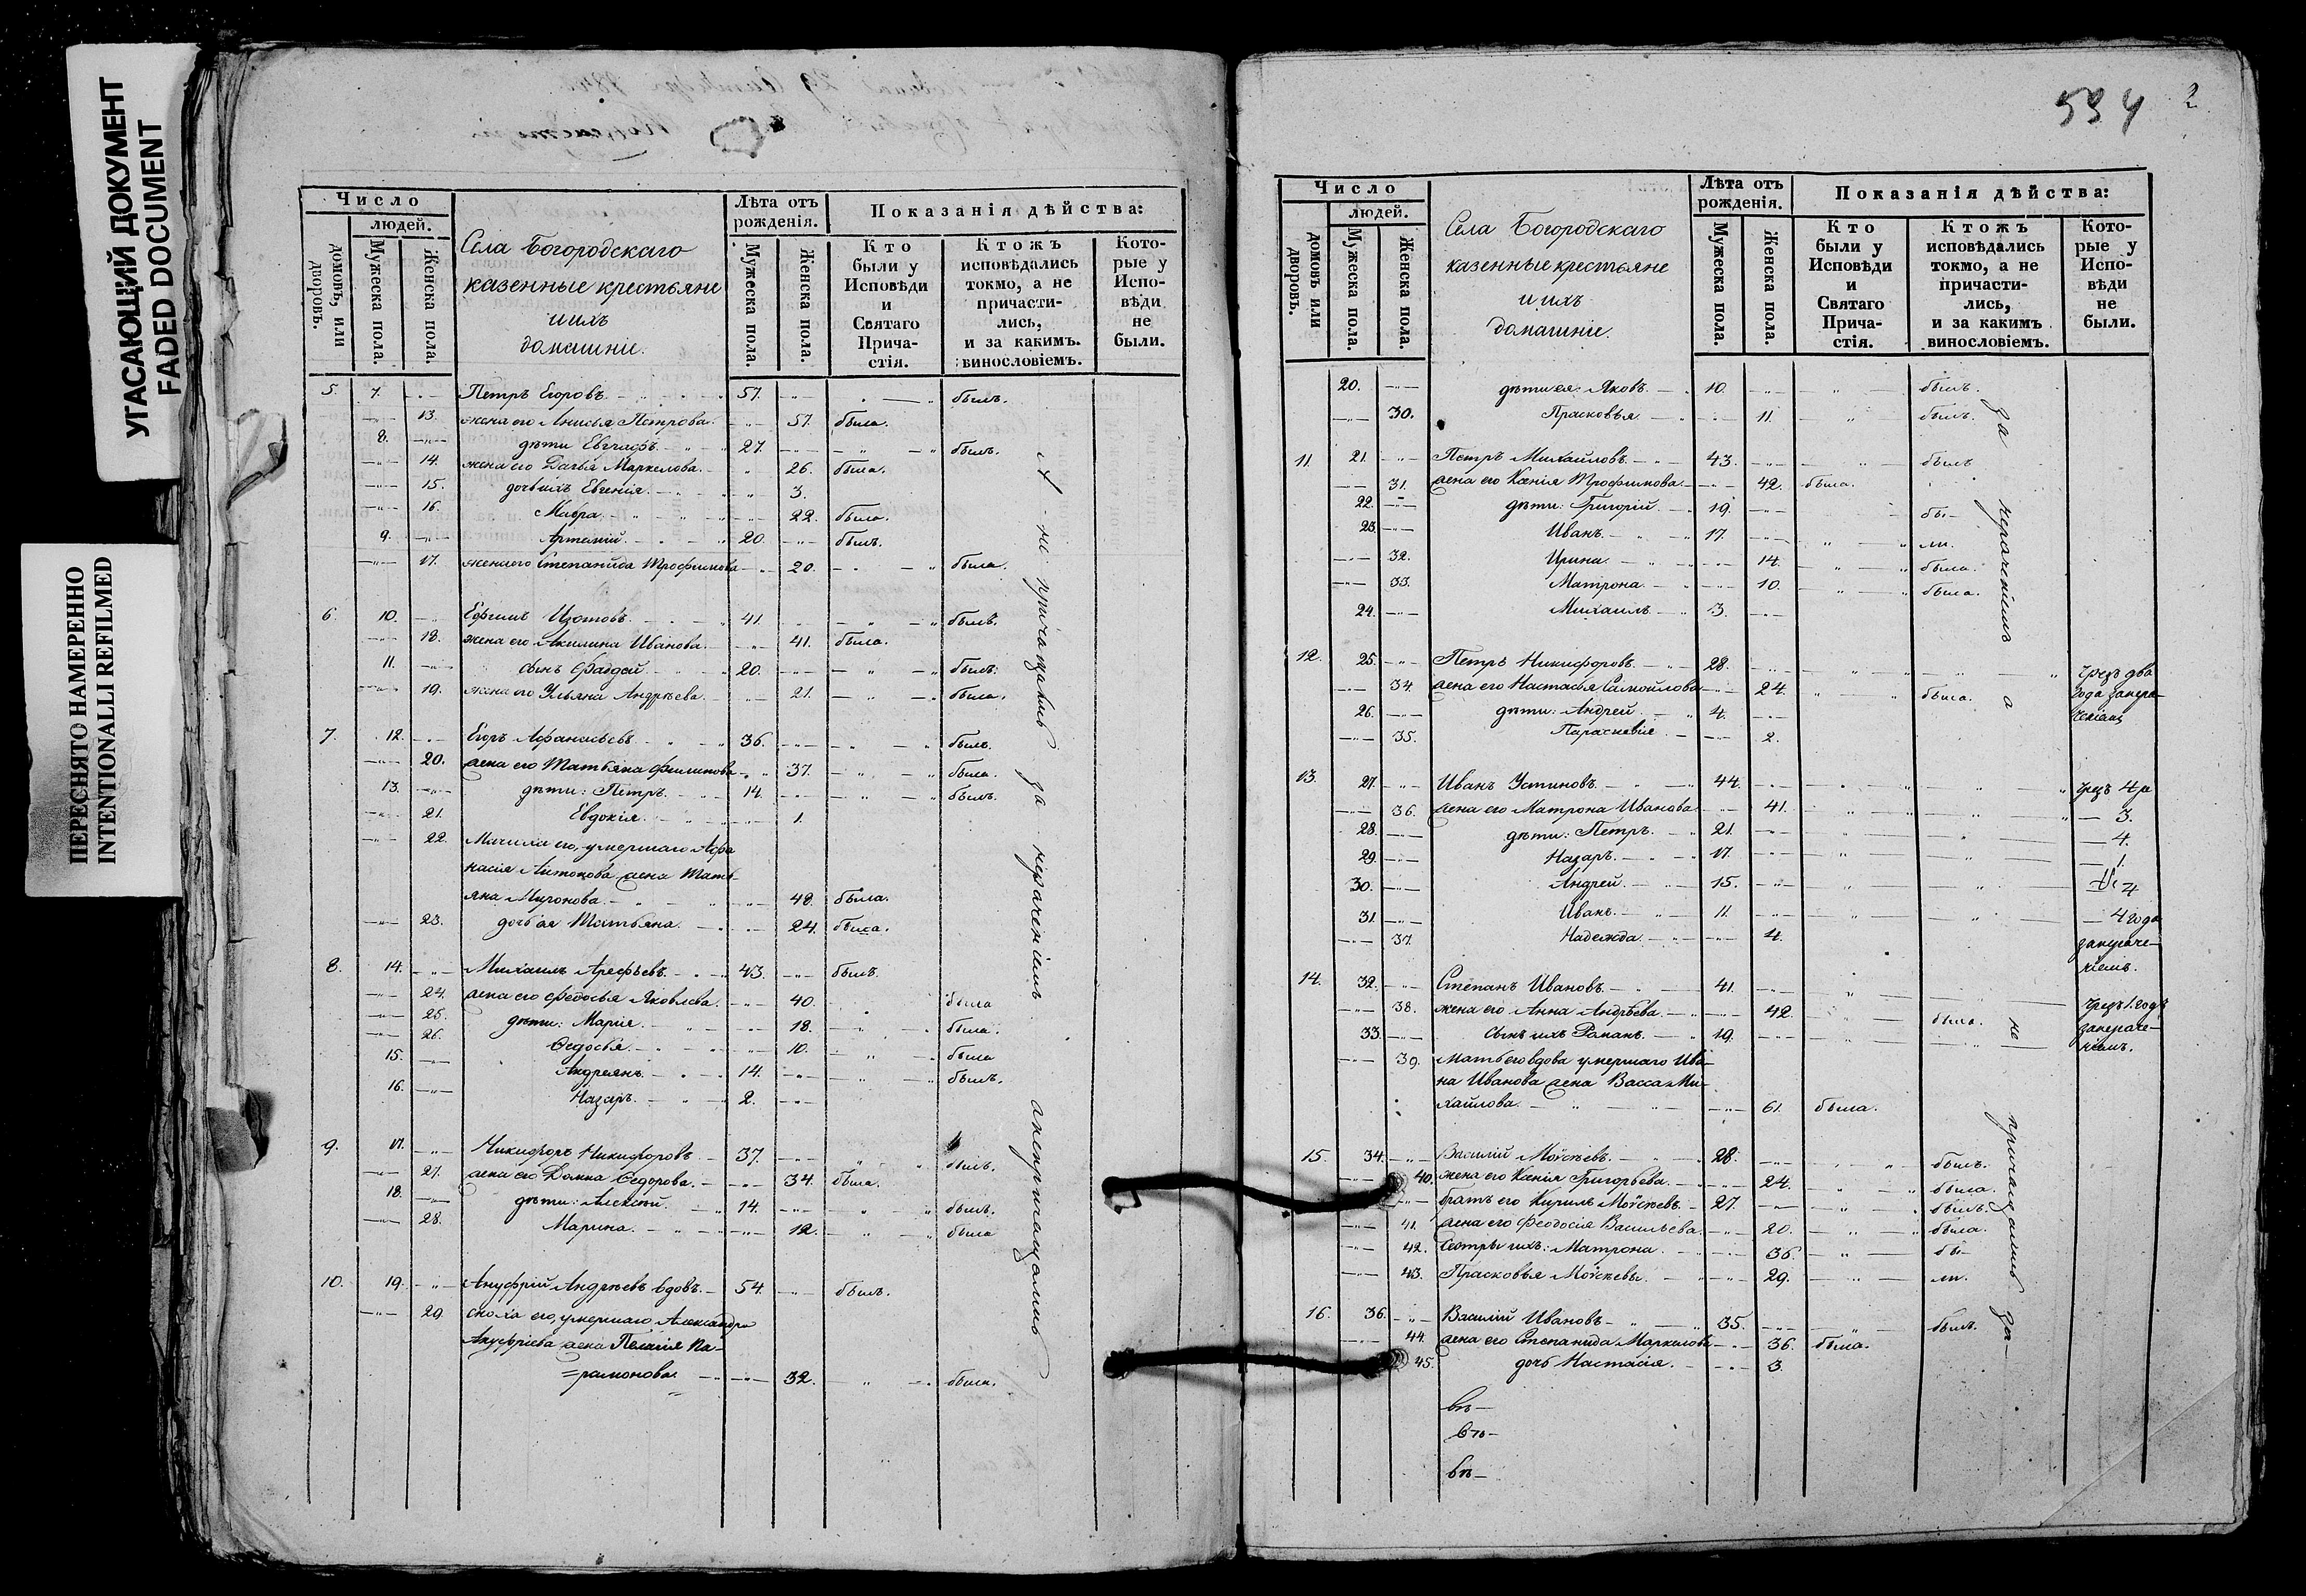 УГАСАЮЩИЙ ДОКУМЕНТ
FADED DOCUMENT
ПЕРЕСНЯТО НАМЕРЕННО
INTENTIONALLI REFILMED
Число
людей.
домовъ, или дворовъ.
Мужеска пола.
Женска пола.
Села Богородскаго
казенные крестьяне
и ихъ
домашніе.
Лѣта отъ рожденія.
Мужеска пола.
Женска пола.
Показанія дѣйства:
Кто были у Исповѣди и Святаго Прича-стія.
Ктожъ исповѣдались токмо, а не причасти-лись, и за какимъ. винословіемъ.
Кото-рые у Испо-вѣди не были.
5. 7. Петръ Егоровъ. 57. былъ.
13. жена его Анисья Петрова. 57. была.
8. дѣти Евграфъ. 27. былъ.
14. жена его Дарья Маркелова. 26. была.
15. дочь ихъ Евгенія. 3.
16. Мавра. 22. была.
9. Артемій. 20. былъ.
17. жена его Степанида Трофимова 20. была.
6. 10. Ефимъ Изотовъ. 41. былъ.
18. жена его Акилина Иванова. 41. была.
11. сынъ Фаддей 20. былъ.
19. жена его Ульяна Андрѣева. 21. была.
7. 12. Егоръ Афанасьевъ 36. былъ.
20. жена его Татьяна Филипова 37. была.
13. дѣти: Петръ. 14. былъ.
21. Евдокія. 1.
22. Мачиха его, умершаго Афа
насія Антонова жена Тать-
яна Миронова. 48. была.
23. дочь ея Татьяна. 24. была.
8. 14. Михаилъ Арефьевъ. 43. былъ.
24. жена его Федосья Яковлева. 40. была
25. дѣти: Марія. 18. была.
26. Федосья. 10. была
15. Андреянъ. 14. былъ.
16. Назаръ. 2.
9. 17. Никифоръ Никифоровъ. 37. былъ.
27. жена его Домна Федорова. 34. была.
18. дѣти: Алексѣй. 14. былъ.
28. Марина. 12. была
10. 19. Ануфрій Андрѣевъ вдовъ. 54. былъ.
29. сноха его, умершаго Александра
Ануфріева жена Пелагія Па-
=рамонова 32. была.
А не причащались за нераченіемъ
а не причащались
594 2
Число
людей.
домовъ или дворовъ.
Мужеска пола.
Женска пола.
Села Богородскаго
казенные крестьяне
и ихъ
домашніе.
Лѣта отъ рожденія.
Мужеска пола.
Женска пола.
Показанія дѣйства:
Кто были у Исповѣди и Святаго Прича-стія.
Ктожъ исповѣдались токмо, а не причасти-лись, и за какимъ винословіемъ.
Кото-рые у Испо-вѣди не были.
20. дѣти ея: Яковъ. 10. былъ.
30. Прасковья 11. была.
11. 21. Петръ Михайловъ. 43. былъ
31. жена его Ксенія Трофимова. 42. была.
22. дѣти: Григорій. 19. бы-
23. Иванъ. 17. ли.
32. Ирина. 14. была.
33. Матрона. 10. была.
24. Михаилъ 3.
12. 25. Петръ Никифоровъ. 28. чрезъ два
34. жена его Настасья Самойлова 24. была. года за нера-
26. дѣти: Андрей. 4. ченіемъ
35. Параскевія 2.
13. 27. Иванъ Устиновъ. 44. чрезъ 4 р
36. жена его Матрона Иванова. 41. 3.
28. дѣти: Петръ. 21. 4.
29. Назаръ. 17. 1.
30. Андрей. 15. 4
31. Иванъ. 11. 4 года
37. Надежда. 4. за нераче-
ніемъ.
14. 32. Степанъ Ивановъ. 41. чрезъ 1. годъ
38. жена его Анна Андрѣева. 42. была. за нераче-
33. сынъ ихъ Романъ. 19. ніемъ.
39. мать его вдова умершаго Ива-
на Иванова жена Васса Ми-
хайлова. 61. была.
15. 34. Василій Моисѣевъ. 28. былъ.
40. жена его Ксенія Григорьева. 24. была.
братъ его Кирилъ Моисѣевъ. 27. былъ.
41. жена его Феодосія Васильева. 20. была.
42. Сестры ихъ: Матрона. 36. бы-
43. Прасковья Моисѣевы. 29. ли.
16. 36. Василій Ивановъ 35. былъ.
44. жена его Степанида Маркелова 36. была.
45. дочь Настасія. 3.
въ-
въ-
въ-
за нераченіемъ
а
не
причащались за-